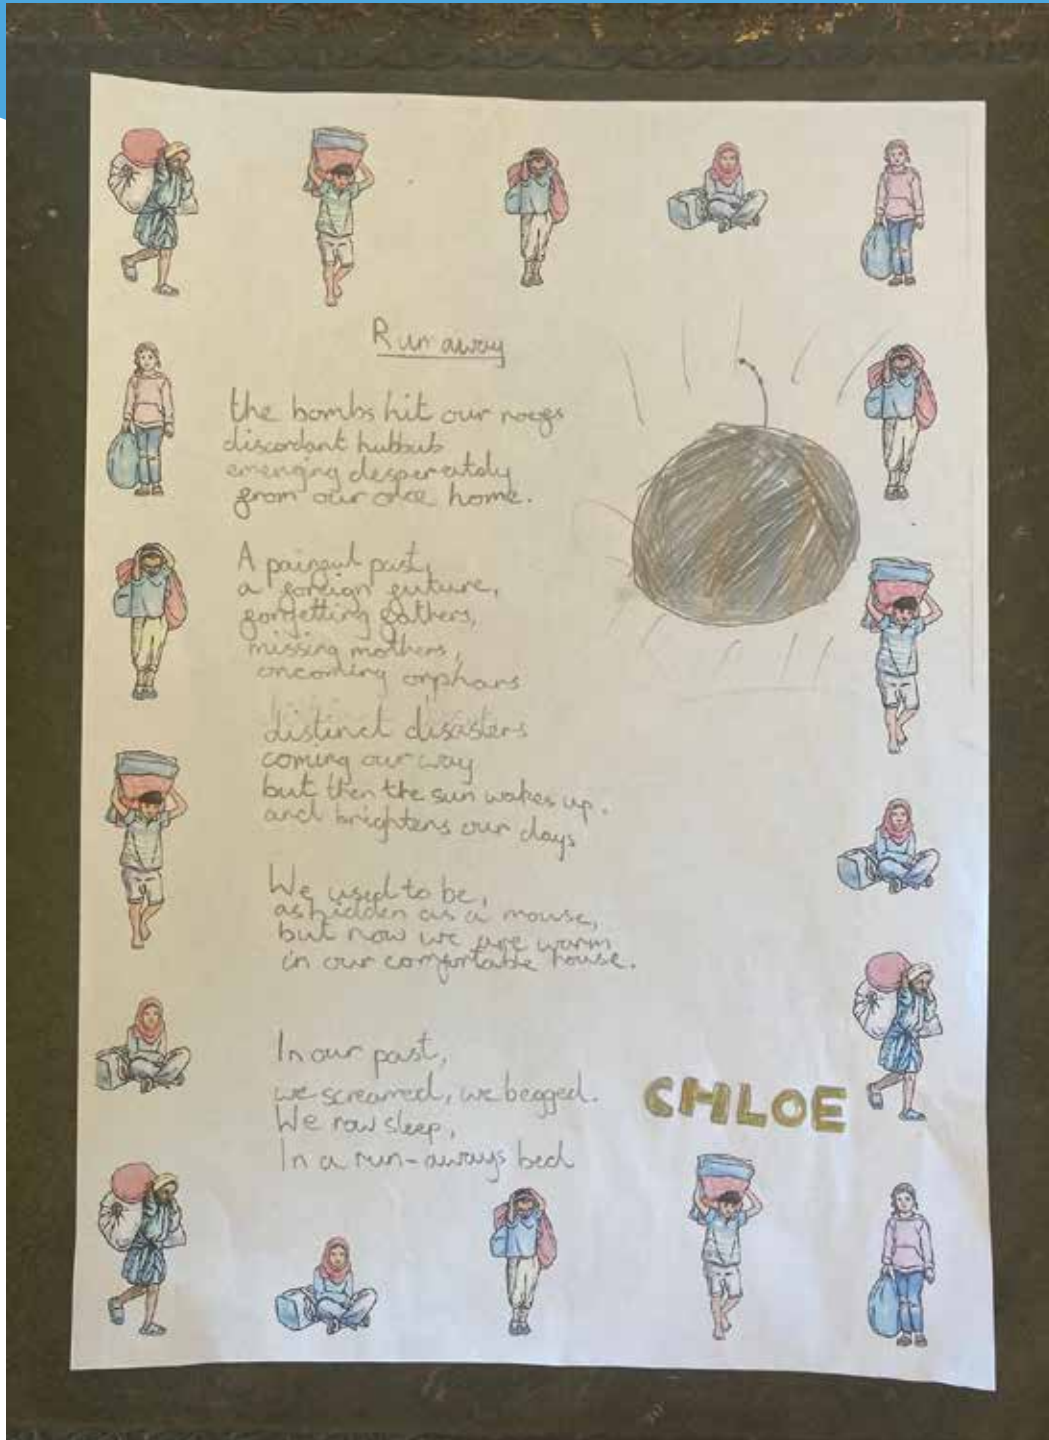 Run away
the bombs hit our roofs
discordant hubbub
emerging desperately
from our once home.
A painful past,
a foreign future,
forgetting fathers,
missing mothers,
oncoming orphans
distinct disasters
coming our way
but then the sun wakes up.
and brightens our days
We used to be,
as hidden as a mouse,
but now we are warm
in our comfortable house.
In our past,
we screamed, we begged.
We now sleep,
In a run-aways bed
CHLOE